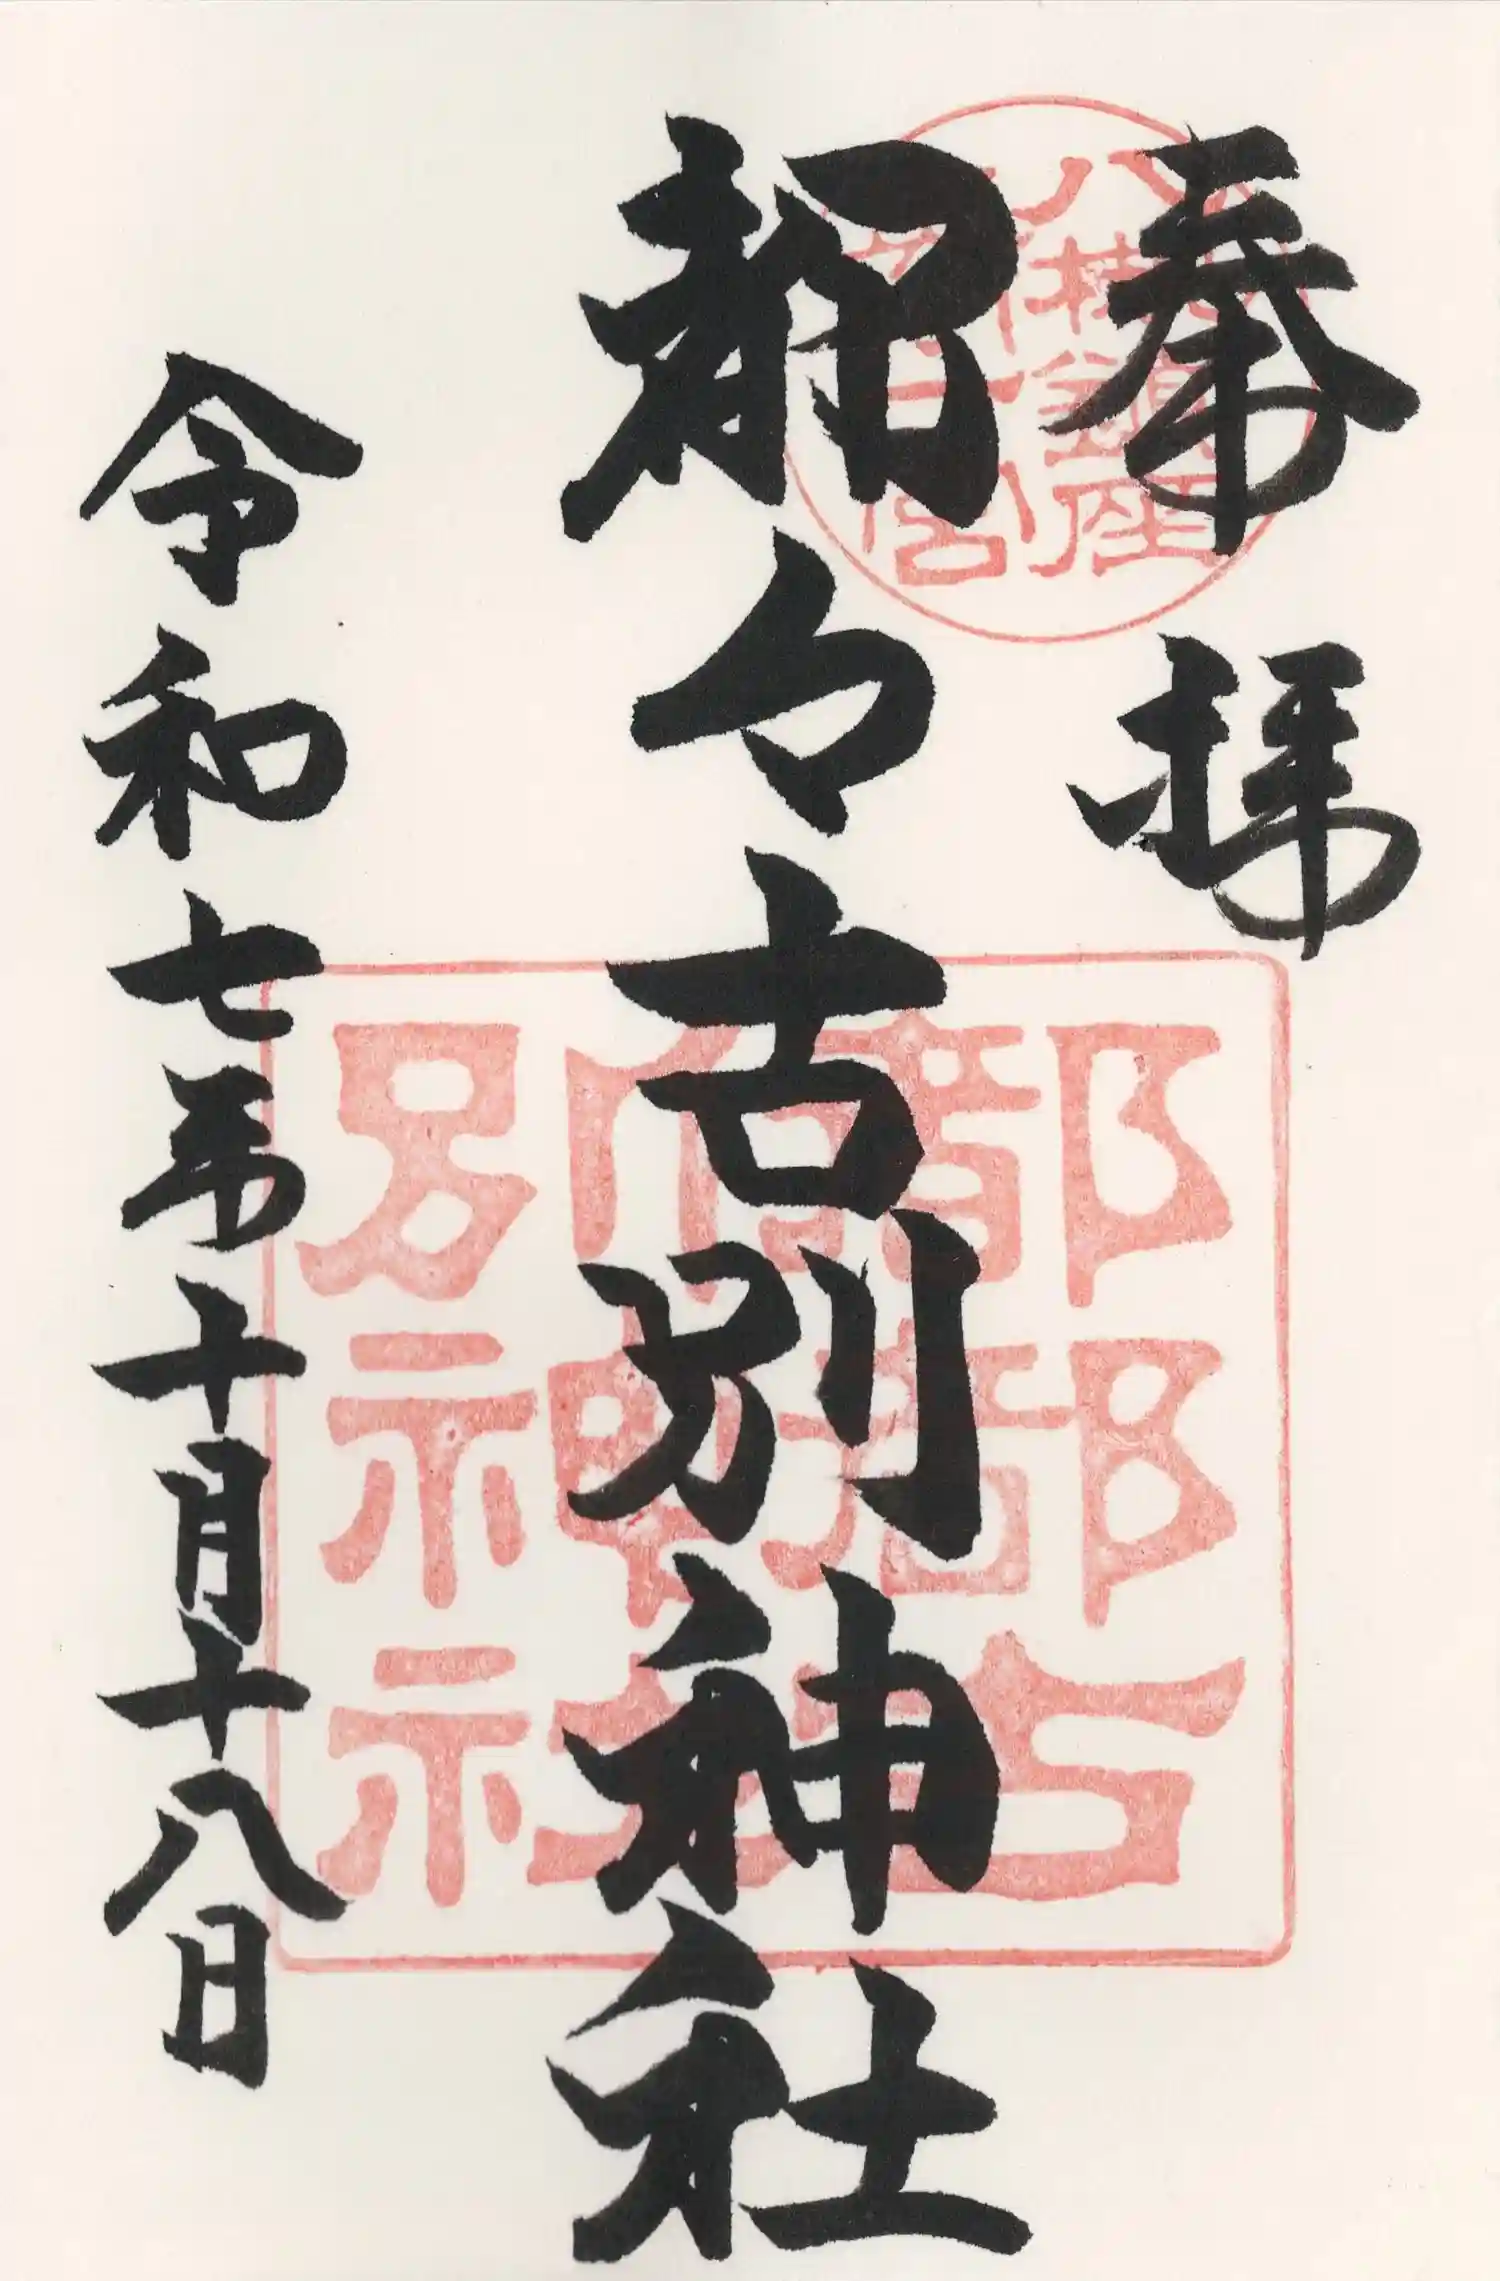 奉拝
都々古別神社
令和七年十月十八日
八槻鎮座
都都古
別神社